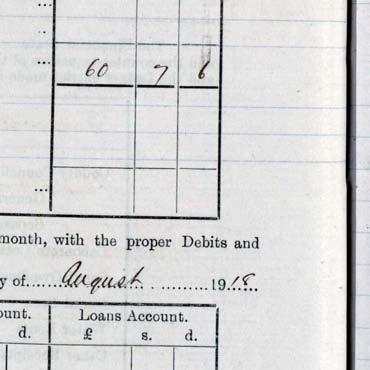 ...
...
60 7 6
...
month, with the proper Debits and
y of......August..............1918
ount. Loans Account.
d. £ s. d.